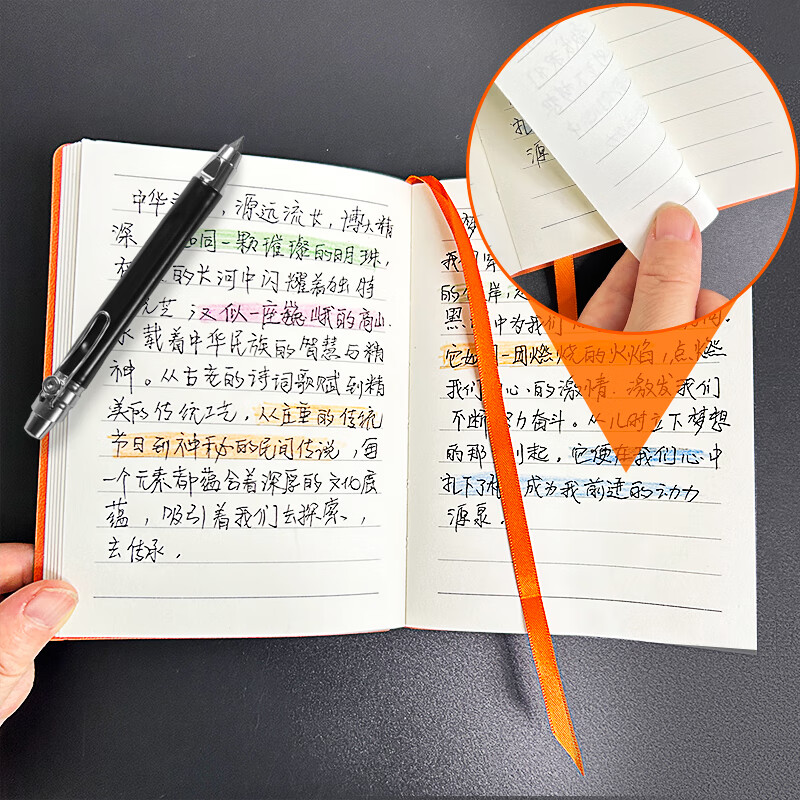 中华 ，源远流长，博大精
深 如同一颗璀璨的明珠，
在 的长河中闪耀着独特
光芒 又似一座巍峨的高山
承载着中华民族的智慧与精
神。从古老的诗词歌赋到精
美的传统工艺，从庄重的传统
节日到神秘的民间传说，每
一个元素都蕴含着深厚的文化底
蕴，吸引着我们去探索，
去传承。
梦
我们穿
的彼岸，
黑 中为我们
它如同一团燃烧的火焰，点燃
我们 心的激情，激发我们
不断努力奋斗。从儿时立下梦想
的那 刻起，它便在我们心中
扎下了根 成为我前进的动力
源泉。
扎
源